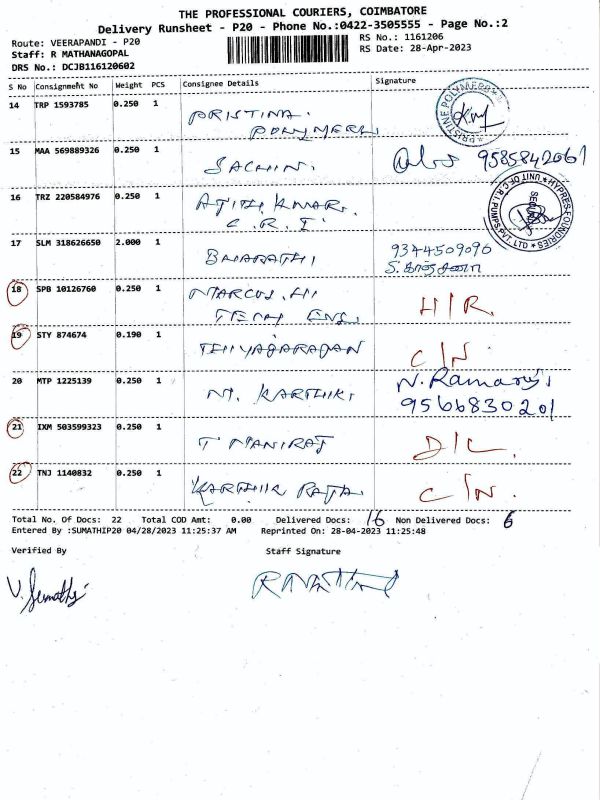 THE PROFESSIONAL COURIERS, COIMBATORE
Delivery Runsheet - P20 - Phone No.:0422-3505555 - Page No.:2
Route: VEERAPANDI - P20 RS No.: 1161206
Staff: R MATHANAGOPAL RS Date: 28-Apr-2023
DRS No.: DCJB116120602
S No Consignment No Weight PCS Consignee Details Signature
14 TRP 1593785 0.250 1 PRISTINA. PRISTINE POLYMERS
POLYMERS
15 MAA 569889326 0.250 1 SACHIN. 9585842061
16 TRZ 220584976 0.250 1 HYPRES-FOUNDRIES UNIT OF C.R.I. PUMPS PVT. LTD
C.R.I
17 SLM 318626650 2.000 1 BHARATHI 9344509096
S. காஞ்சனா
18 SPB 10126760 0.250 1 MARCUS. HI H/R.
TECH ENG.
19 STY 874674 0.190 1 THIYAGARAJAN C/N.
20 MTP 1225139 0.250 1 M. KARTHIK. N. Ramaraj.
9566830201
21 IXM 503599323 0.250 1 T MANIRAJ D/L.
22 TNJ 1140832 0.250 1 KARTHIK RAJA. C/N.
Total No. Of Docs: 22 Total COD Amt: 0.00 Delivered Docs: 16 Non Delivered Docs: 6
Entered By :SUMATHIP20 04/28/2023 11:25:37 AM Reprinted On: 28-04-2023 11:25:48
Verified By Staff Signature
V. Sumathi